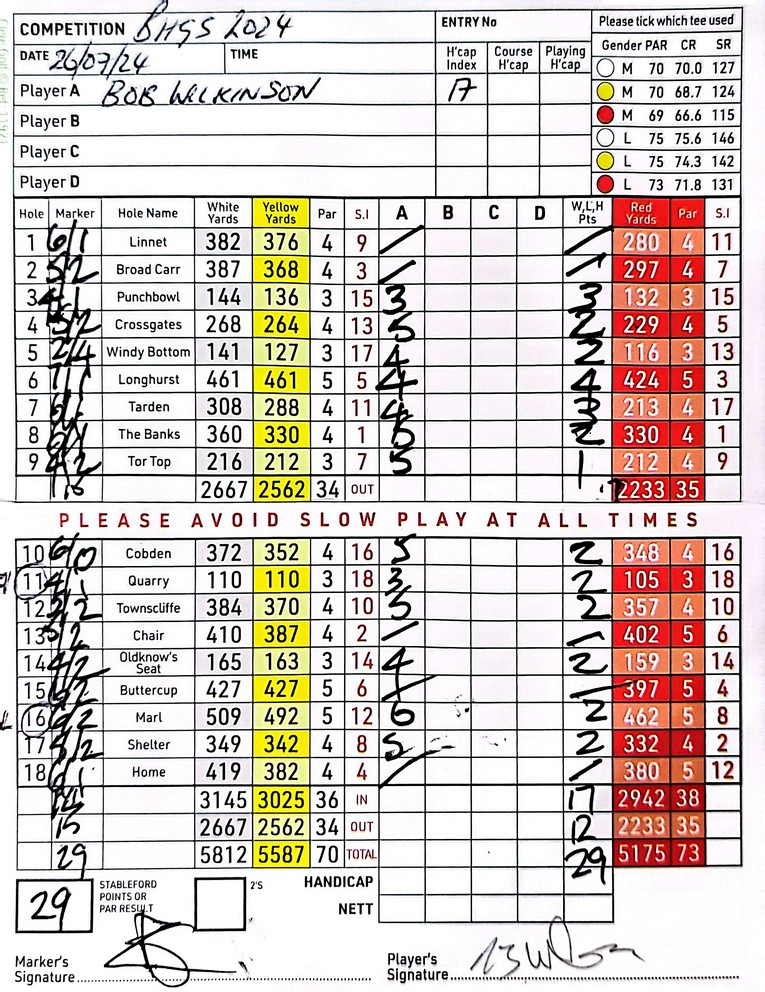 COMPETITION BHGS 2024 ENTRY No Please tick which tee used
DATE 26/07/24 TIME H'cap Index Course H'cap Playing H'cap Gender PAR CR SR
M 70 70.0 127
Player A BOB WILKINSON 17 M 70 68.7 124
Player B M 69 66.6 115
L 75 75.6 146
Player C L 75 74.3 142
Player D L 73 71.8 131
Hole Marker Hole Name White Yards Yellow Yards Par S.I A B C D W,L,H Pts Red Yards Par S.I
1 6/1 Linnet 382 376 4 9 / / 280 4 11
2 5/2 Broad Carr 387 368 4 3 / / 297 4 7
3 Punchbowl 144 136 3 15 3 3 132 3 15
4 5/2 Crossgates 268 264 4 13 5 2 229 4 5
5 2/4 Windy Bottom 141 127 3 17 4 2 116 3 13
6 Longhurst 461 461 5 5 4 4 424 5 3
7 Tarden 308 288 4 11 4 3 213 4 17
8 The Banks 360 330 4 1 5 2 330 4 1
9 4/2 Tor Top 216 212 3 7 5 1 212 4 9
2667 2562 34 OUT 2233 35
PLEASE AVOID SLOW PLAY AT ALL TIMES
10 6/0 Cobden 372 352 4 16 5 2 348 4 16
11 4/1 Quarry 110 110 3 18 3 2 105 3 18
12 5/2 Townscliffe 384 370 4 10 5 2 357 4 10
13 5/2 Chair 410 387 4 2 / / 402 5 6
14 4/2 Oldknow's Seat 165 163 3 14 4 2 159 3 14
15 Buttercup 427 427 5 6 / 397 5 4
16 6/2 Marl 509 492 5 12 6 2 462 5 8
17 5/2 Shelter 349 342 4 8 5 2 332 4 2
18 6/1 Home 419 382 4 4 / / 380 5 12
14 3145 3025 36 IN 17 2942 38
15 2667 2562 34 OUT 12 2233 35
29 5812 5587 70 TOTAL 29 5175 73
29 STABLEFORD POINTS OR PAR RESULT 2'S HANDICAP
NETT
Marker's Signature Player's Signature